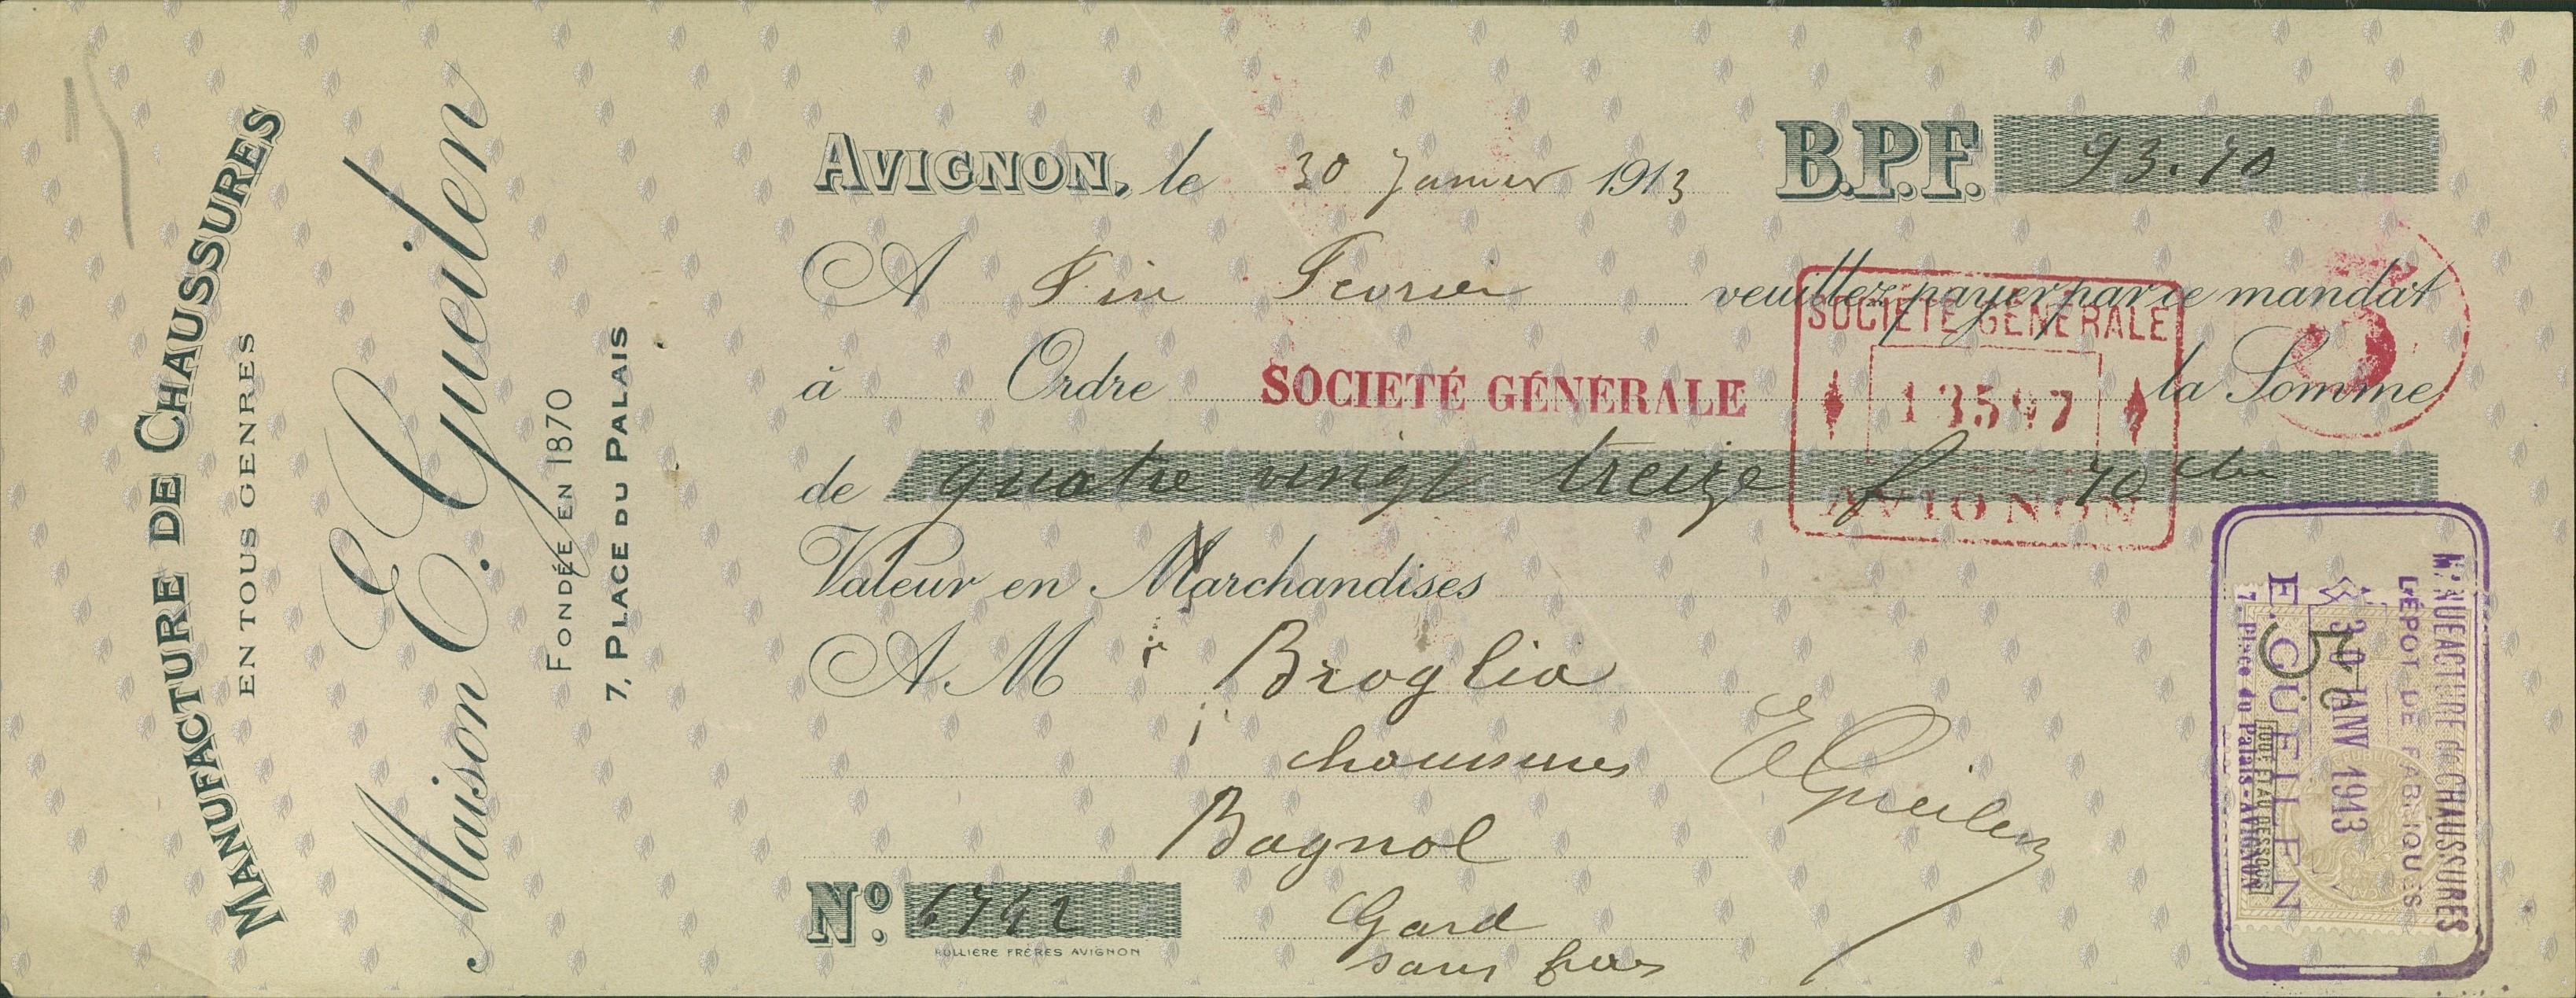 MANUFACTURE DE CHAUSSURES
EN TOUS GENRES
Maison E. Gueilen
FONDÉE EN 1870
7, PLACE DU PALAIS
AVIGNON, le 30 Janvier 1913
B.P.F. 93.70
A Fin Fevrier veuillez payer par ce mandat
à Ordre SOCIETÉ GÉNÉRALE la Somme
SOCIÉTÉ GÉNÉRALE
AVIGNON
de quatre vingt treize f 70 cts
Valeur en Marchandises
A M r Broglia
chaussures
E Gueilen
Bagnol
Gard
sans frais
No.
RULLIÈRE FRÈRES AVIGNON
MANUFACTURE de CHAUSSURES
DÉPOT DE FABRIQUES
30 JANV 1913
E. GUEILEN
7, Place du Palais - AVIGNON
5c